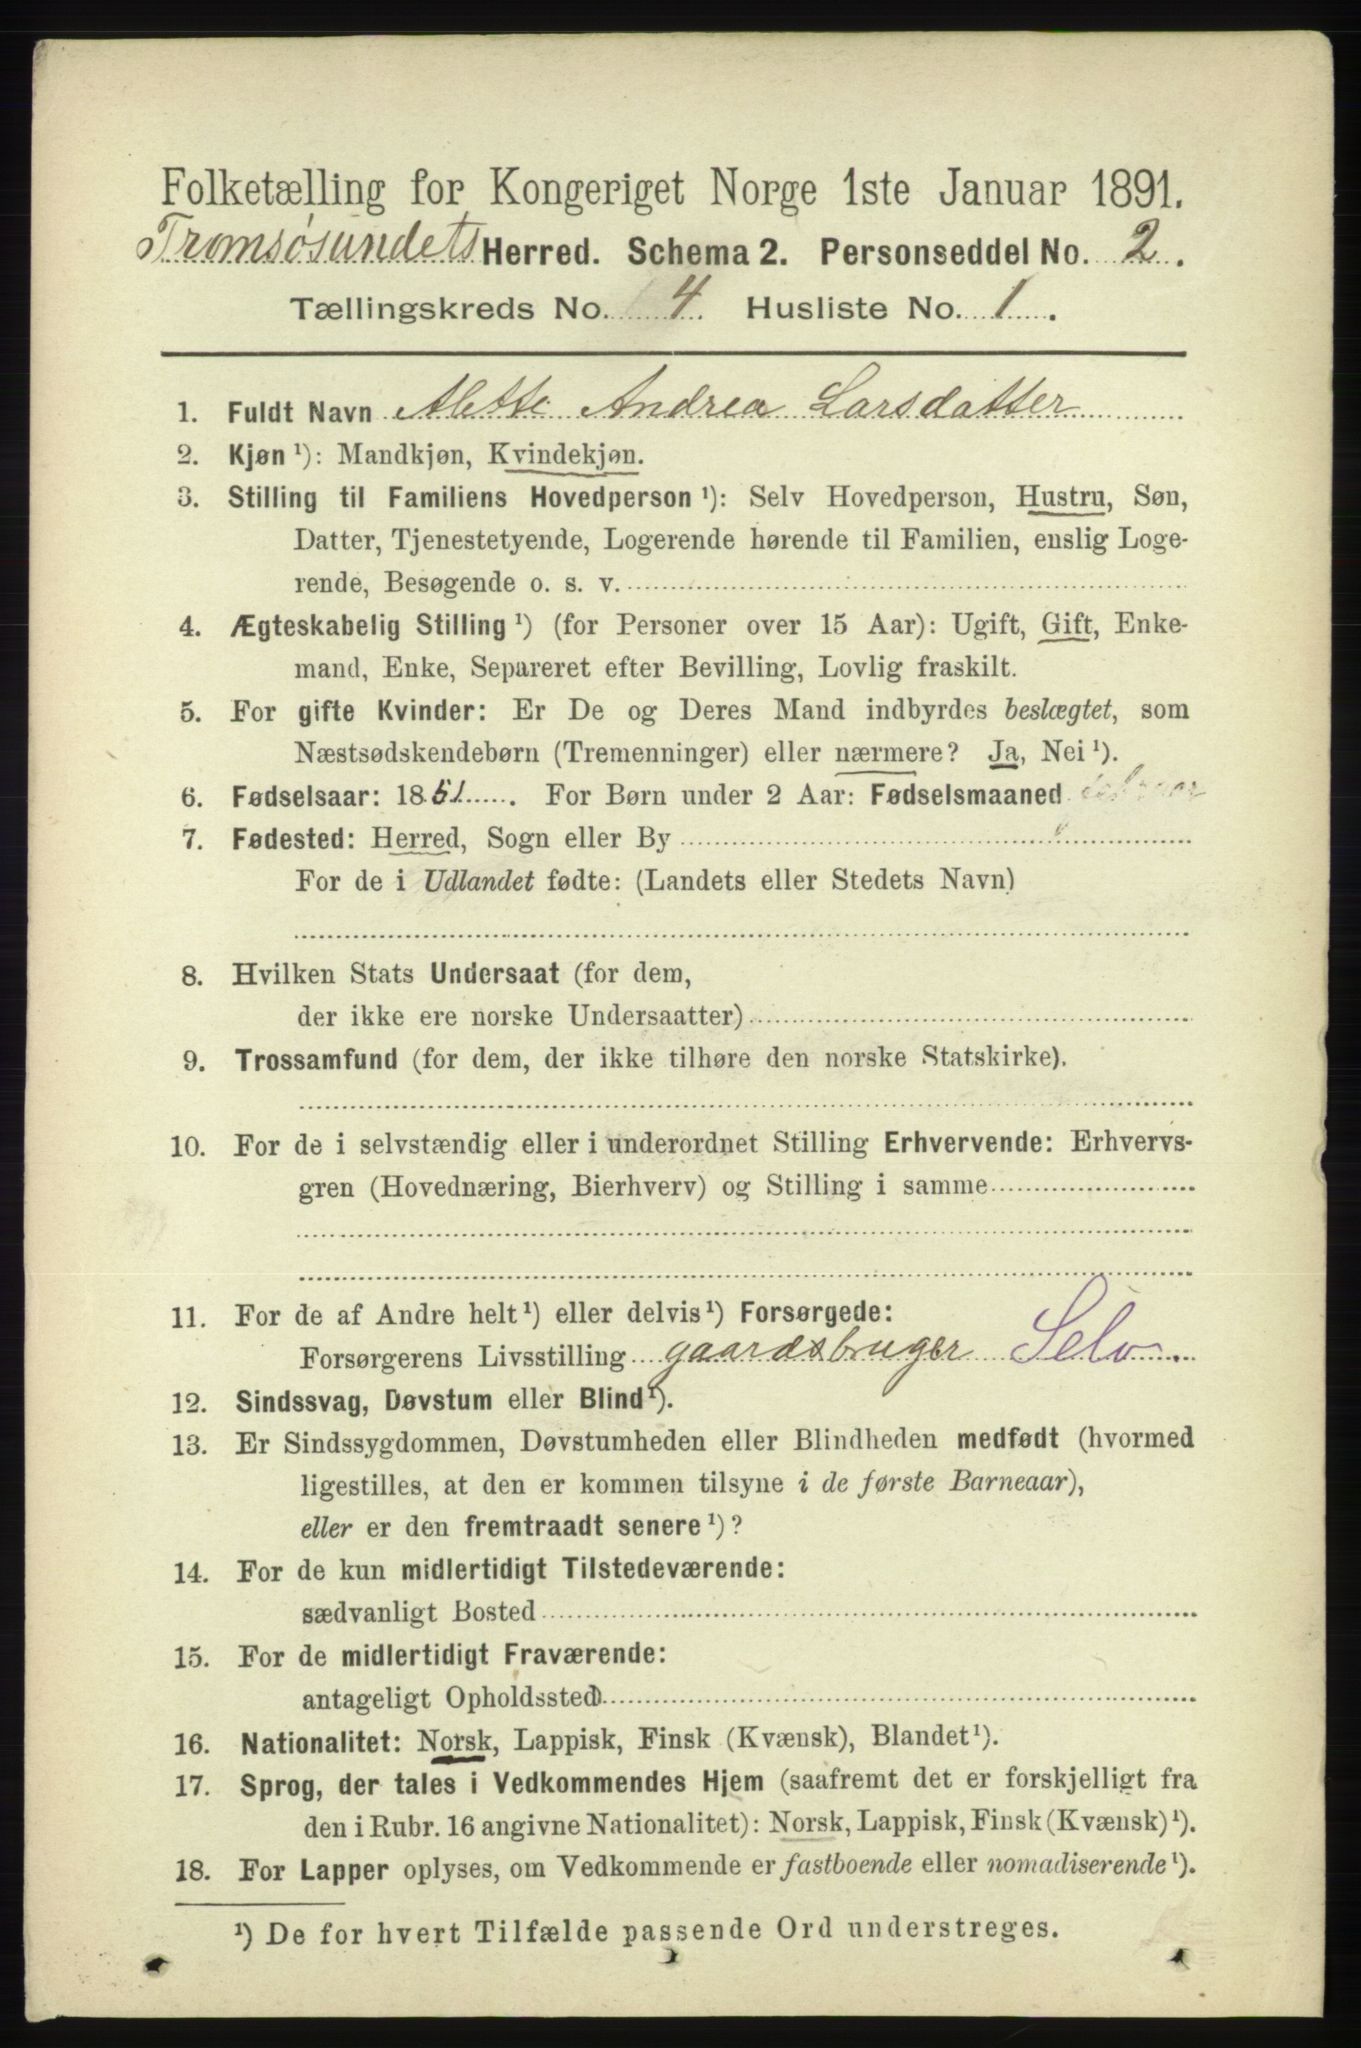 Folketælling for Kongeriget Norge 1ste Januar 1891.
Tromsøsundets Herred. Schema 2. Personseddel No. 2.
Tællingskreds No. 4. Husliste No. 1.
1. Fuldt Navn Alette Andrea Larsdatter
2. Kjøn ¹): Mandkjøn, Kvindekjøn.
3. Stilling til Familiens Hovedperson ¹): Selv Hovedperson, Hustru, Søn,
Datter, Tjenestetyende, Logerende hørende til Familien, enslig Loge-
rende, Besøgende o. s. v.
4. Ægteskabelig Stilling ¹) (for Personer over 15 Aar): Ugift, Gift, Enke-
mand, Enke, Separeret efter Bevilling, Lovlig fraskilt.
5. For gifte Kvinder: Er De og Deres Mand indbyrdes beslægtet, som
Næstsødskendebørn (Tremenninger) eller nærmere? Ja, Nei ¹).
6. Fødselsaar: 1851. For Børn under 2 Aar: Fødselsmaaned februar
7. Fødested: Herred, Sogn eller By
For de i Udlandet fødte: (Landets eller Stedets Navn)
8. Hvilken Stats Undersaat (for dem,
der ikke ere norske Undersaatter)
9. Trossamfund (for dem, der ikke tilhøre den norske Statskirke).
10. For de i selvstændig eller i underordnet Stilling Erhvervende: Erhvervs-
gren (Hovednæring, Bierhverv) og Stilling i samme
11. For de af Andre helt ¹) eller delvis ¹) Forsørgede:
Forsørgerens Livsstilling gaardsbruger Selv.
12. Sindssvag, Døvstum eller Blind ¹).
13. Er Sindssygdommen, Døvstumheden eller Blindheden medfødt (hvormed
ligestilles, at den er kommen tilsyne i de første Barneaar),
eller er den fremtraadt senere ¹)?
14. For de kun midlertidigt Tilstedeværende:
sædvanligt Bosted
15. For de midlertidigt Fraværende:
antageligt Opholdssted
16. Nationalitet: Norsk, Lappisk, Finsk (Kvænsk), Blandet ¹).
17. Sprog, der tales i Vedkommendes Hjem (saafremt det er forskjelligt fra
den i Rubr. 16 angivne Nationalitet): Norsk, Lappisk, Finsk (Kvænsk) ¹).
18. For Lapper oplyses, om Vedkommende er fastboende eller nomadiserende ¹).
¹) De for hvert Tilfælde passende Ord understreges.